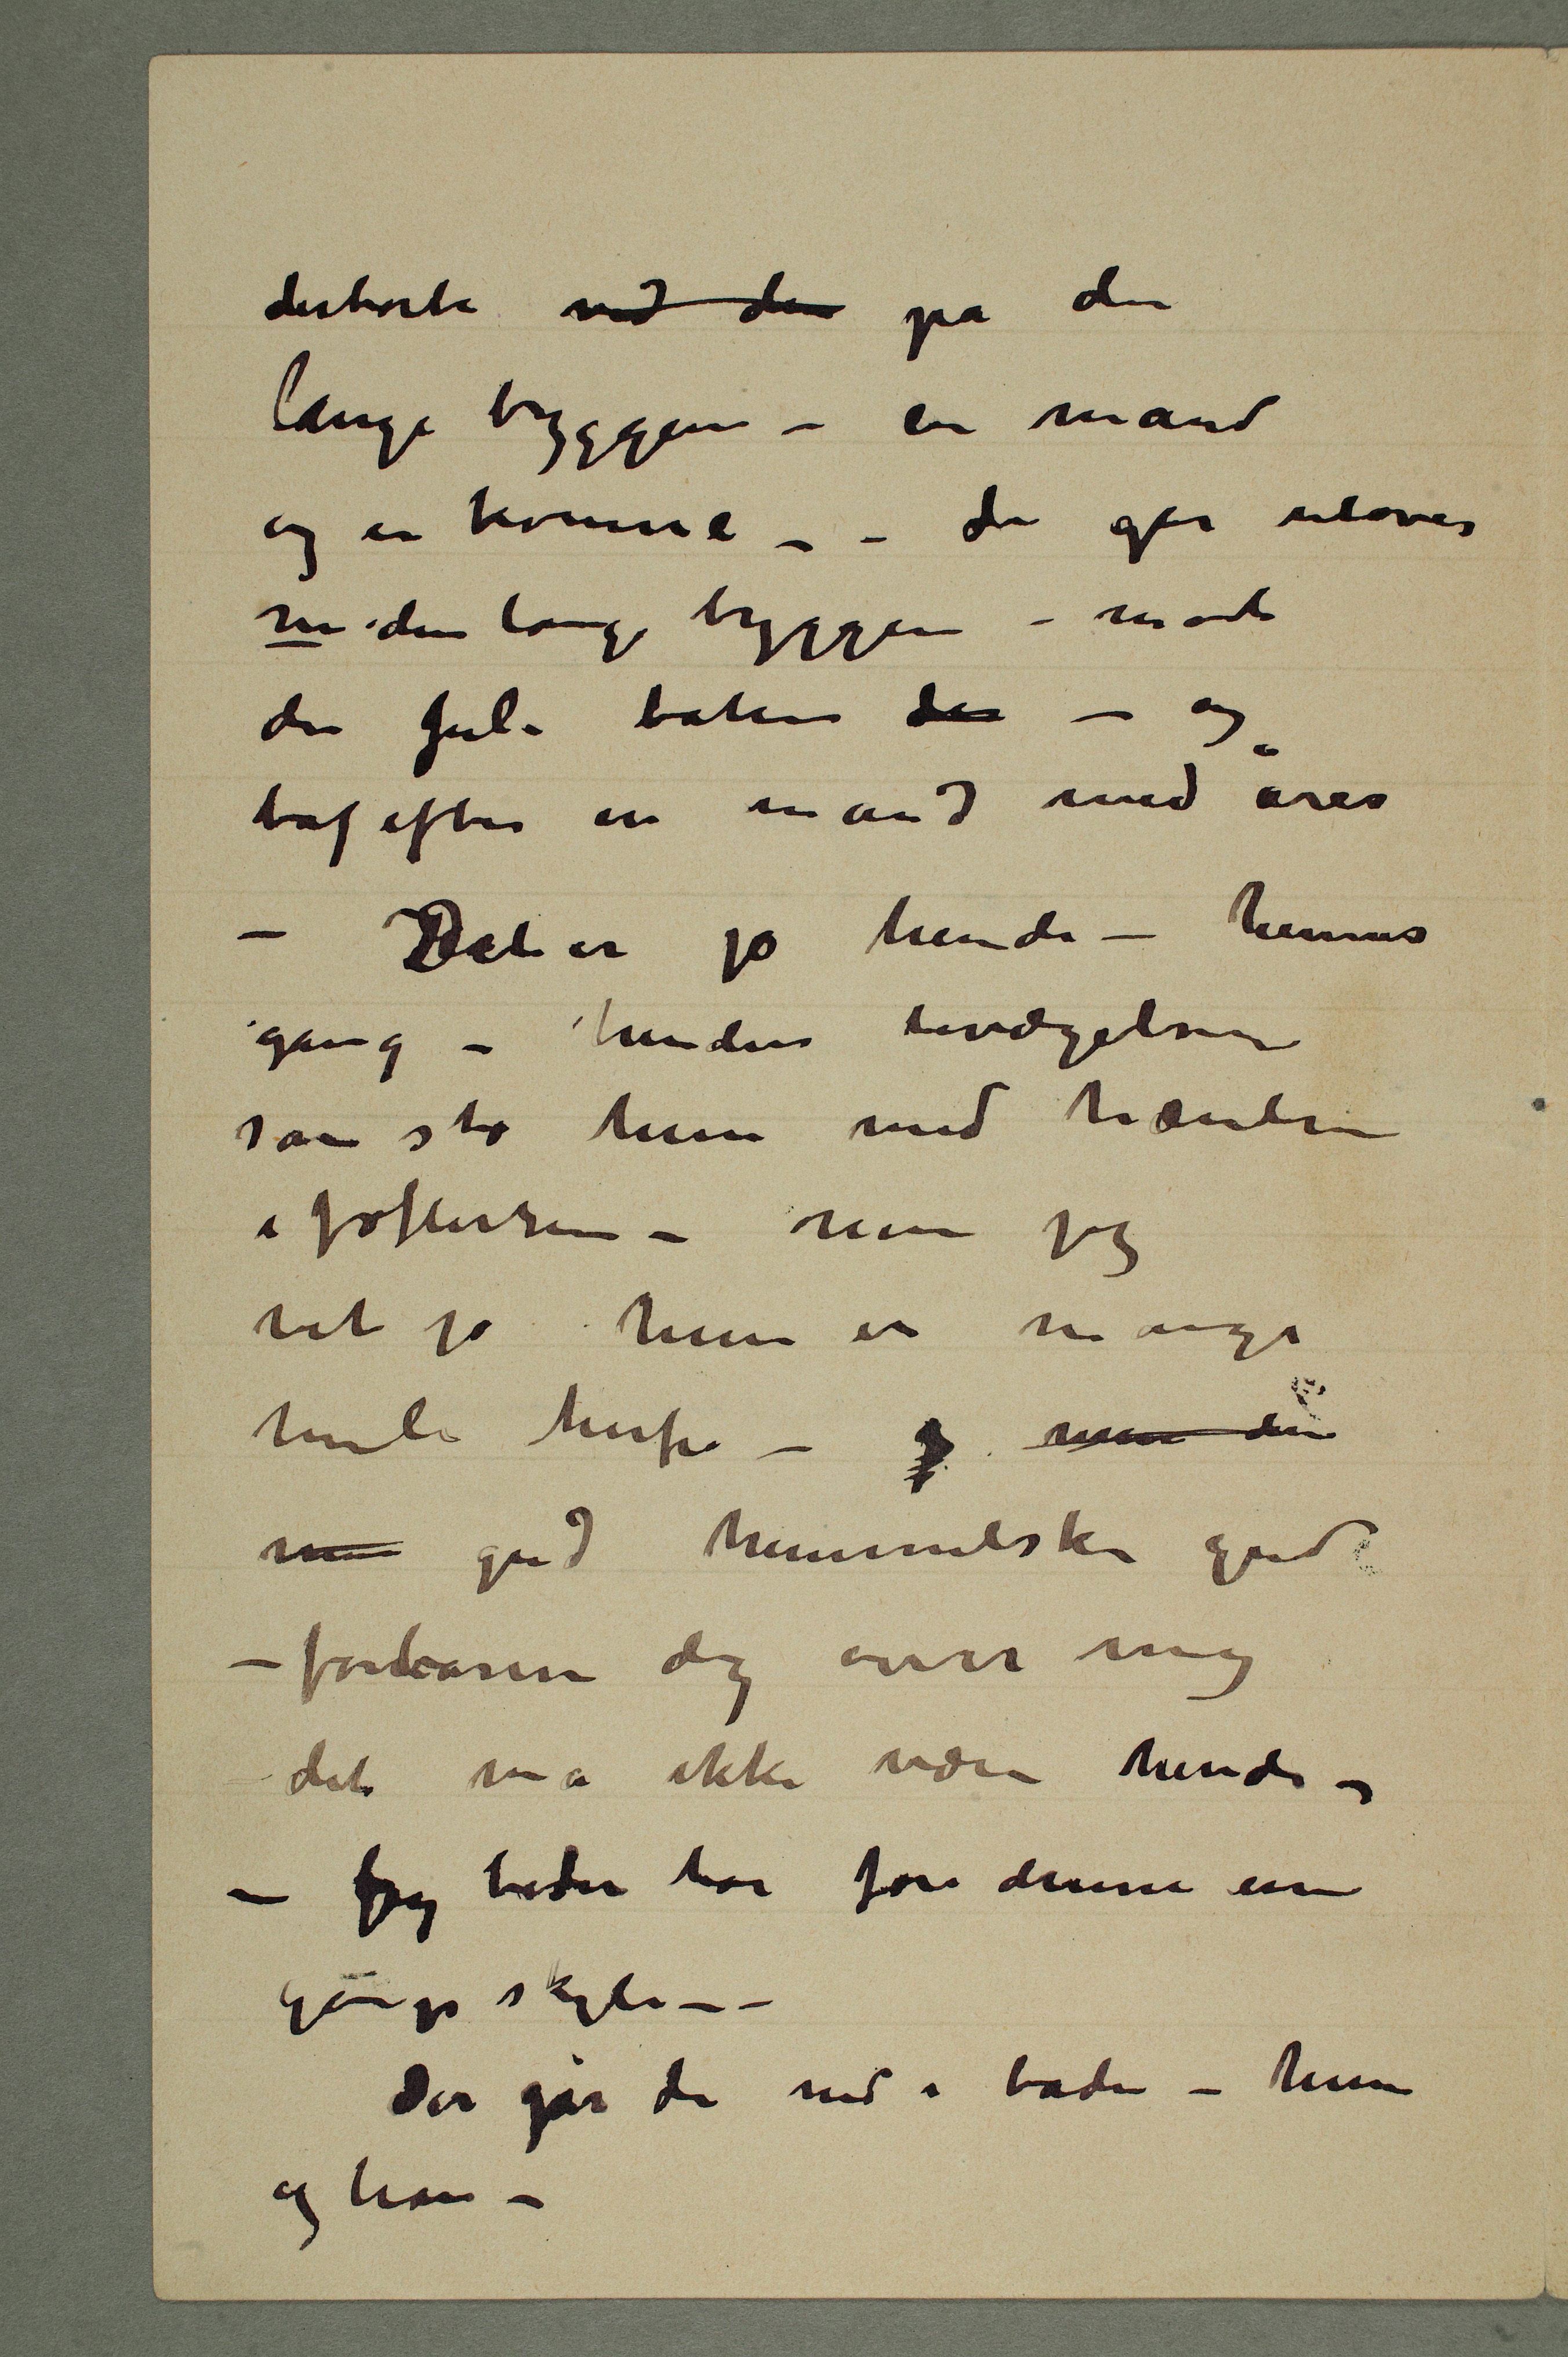 derborte ved den på den
lange bryggen – en mand
og en kvinne – – de går utover
m den lange bryggen – mod
den gule båten den – og
bag efter en mand med årer
– Det er jo hende – hennes
gang – hendes bevægelsen
som sto hun med hænden
i  – men jeg
vet jo hun er mange
mile herfra – men den
men gud himmelske gud
– forbarm dig over mig
det må ikke være hende –
– Jeg beder har for denne ene
gangs skyld – –
Der går de ned i båden – hun
og han –